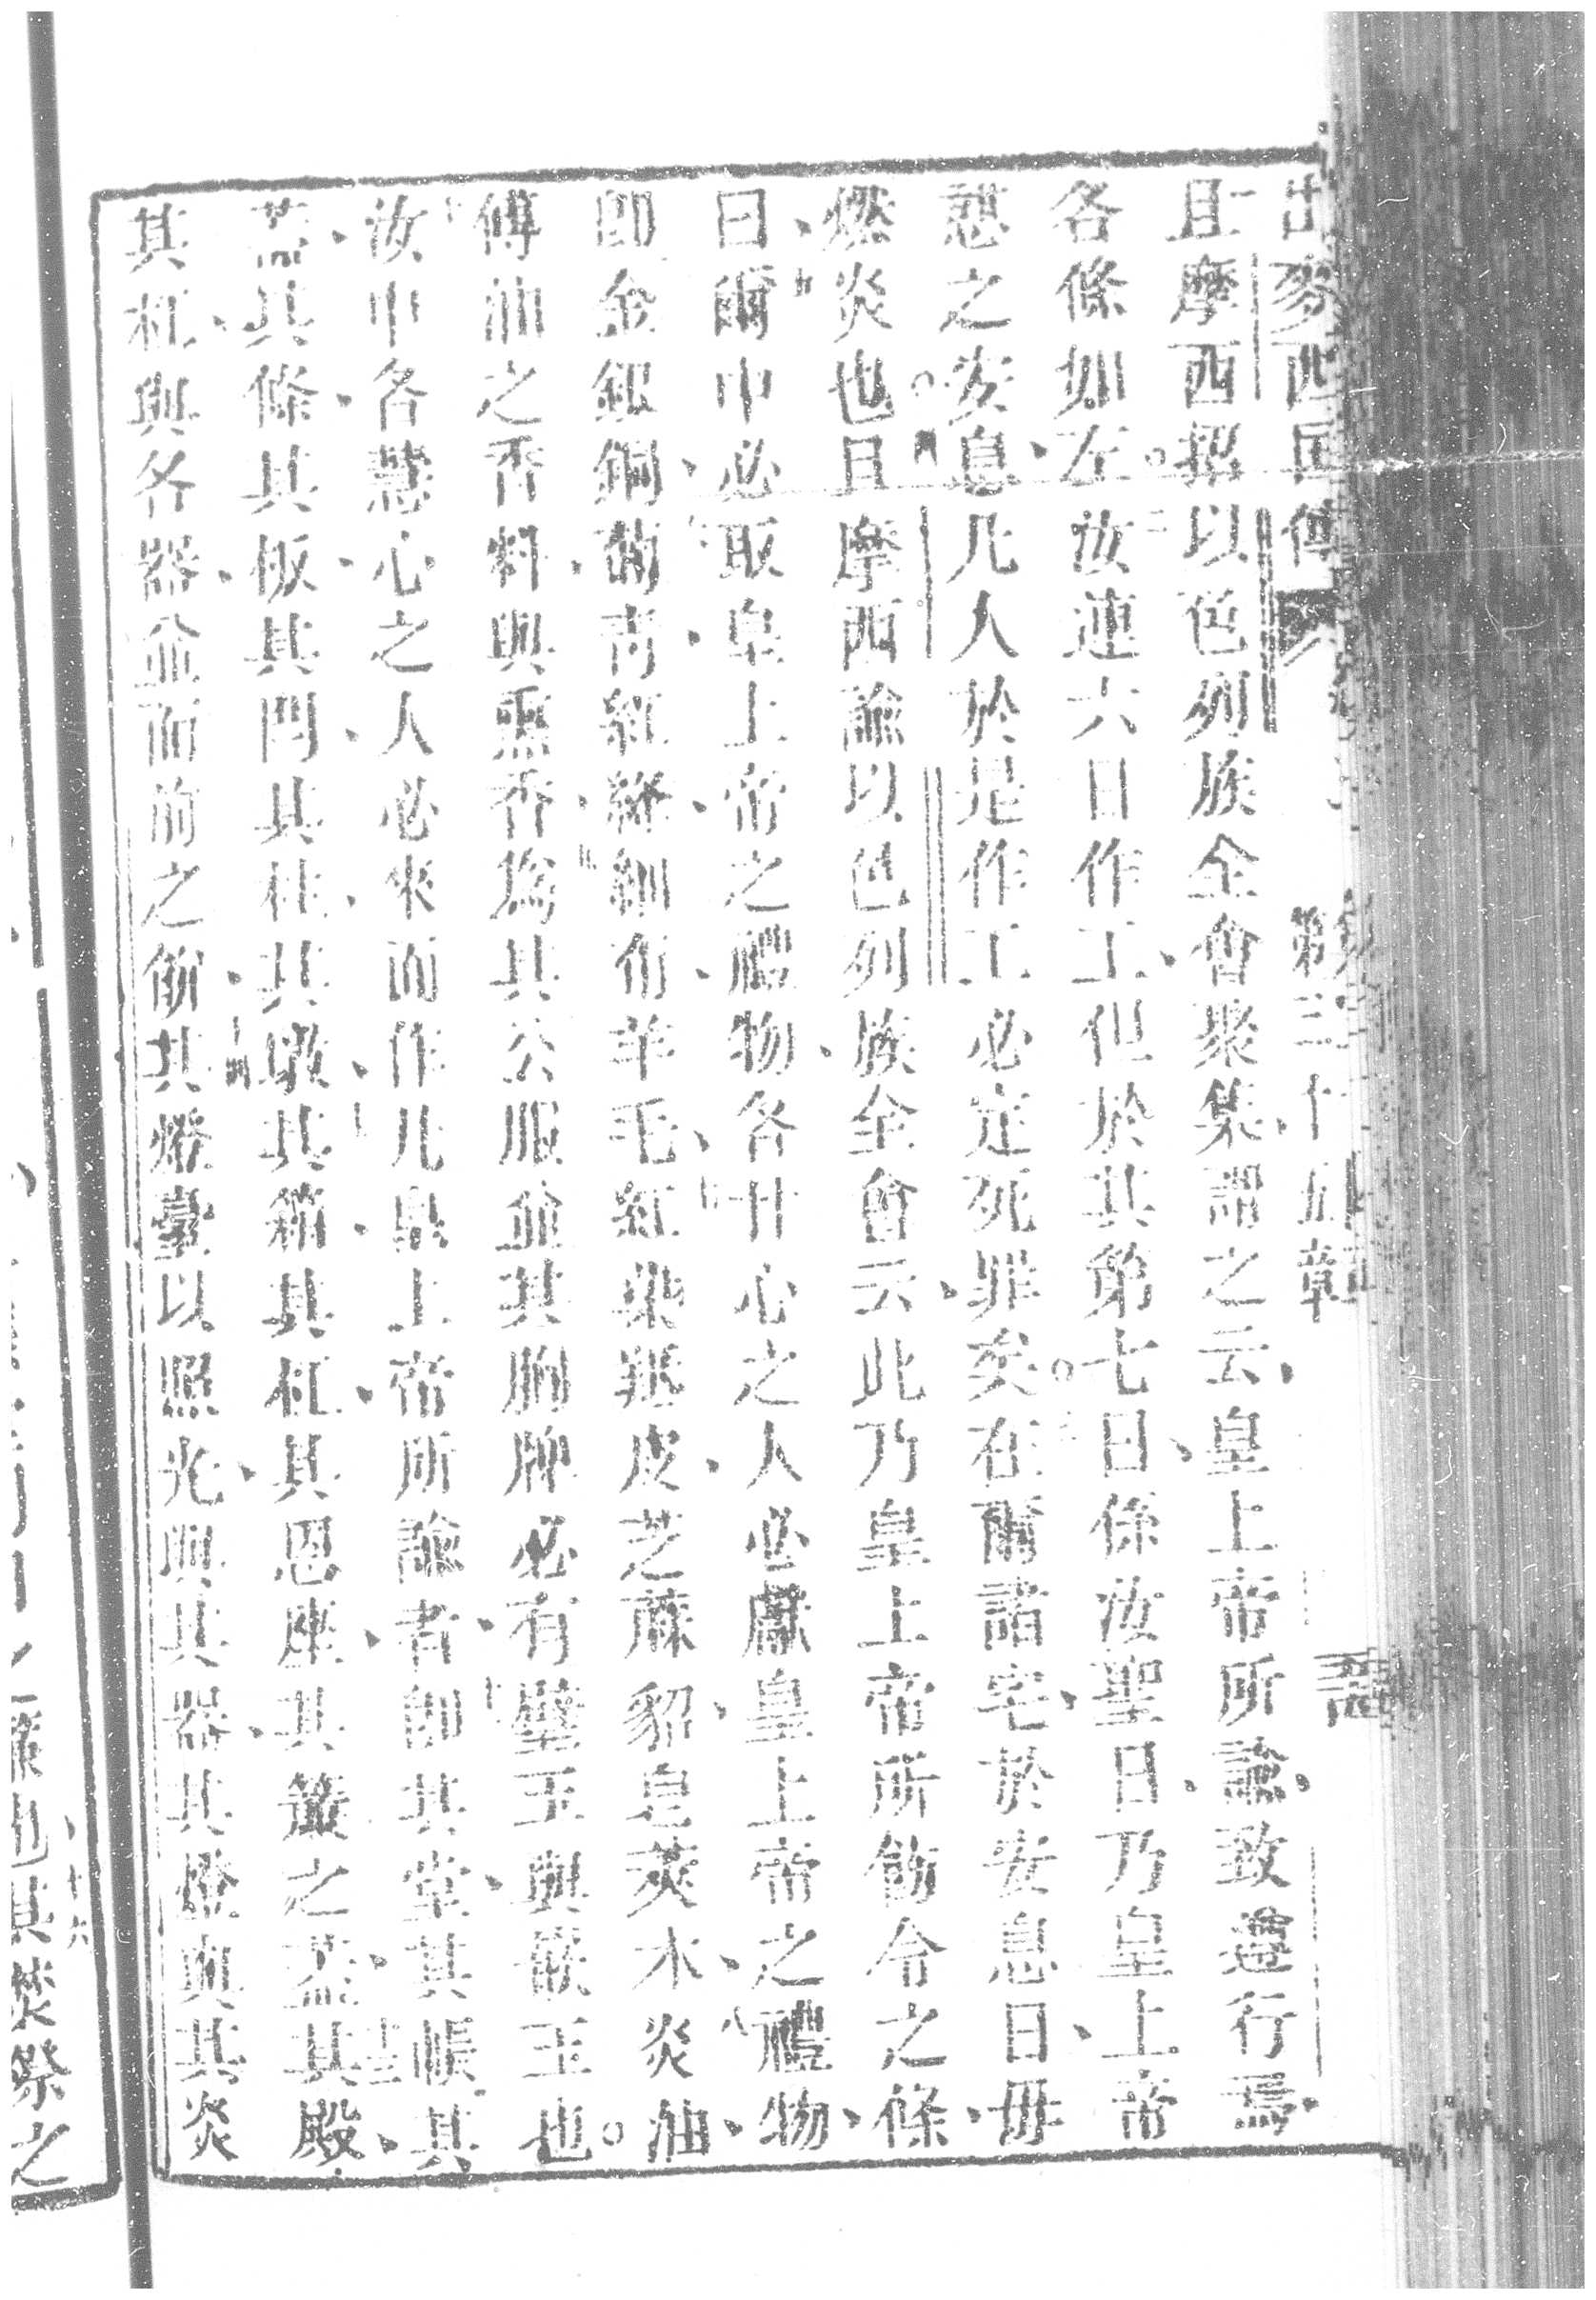 出麥西國傳 第三十五章
且摩西招以色列族全會聚集謂之云皇上帝所諭致遵行焉
各條如左汝連六日作工但於其第七日係汝聖日乃皇上帝
憩之安息凡人於是作工必定死罪矣在爾諸宅於安息日毋
燃炎也且摩西諭以色列族全會云此乃皇上帝所飭令之條
曰爾中必取皇上帝之禮物各甘心之人必獻皇上帝之禮物
即金銀銅葡青紅絳細布羊毛紅染羝皮芝蔴貂皂莢木炎油
傅油之香料與熏香為其公服並其胸牌必有璧玉與嵌玉也
汝中各慧心之人必來而作凡皇上帝所諭者即其堂其帳其
蓋其條其板其閂其柱其墩其箱其杠其恩座其簾之蓋其殿
其杠與各器並面前之餅其燈臺以照光與其器其燈與其炎
也其焚祭之